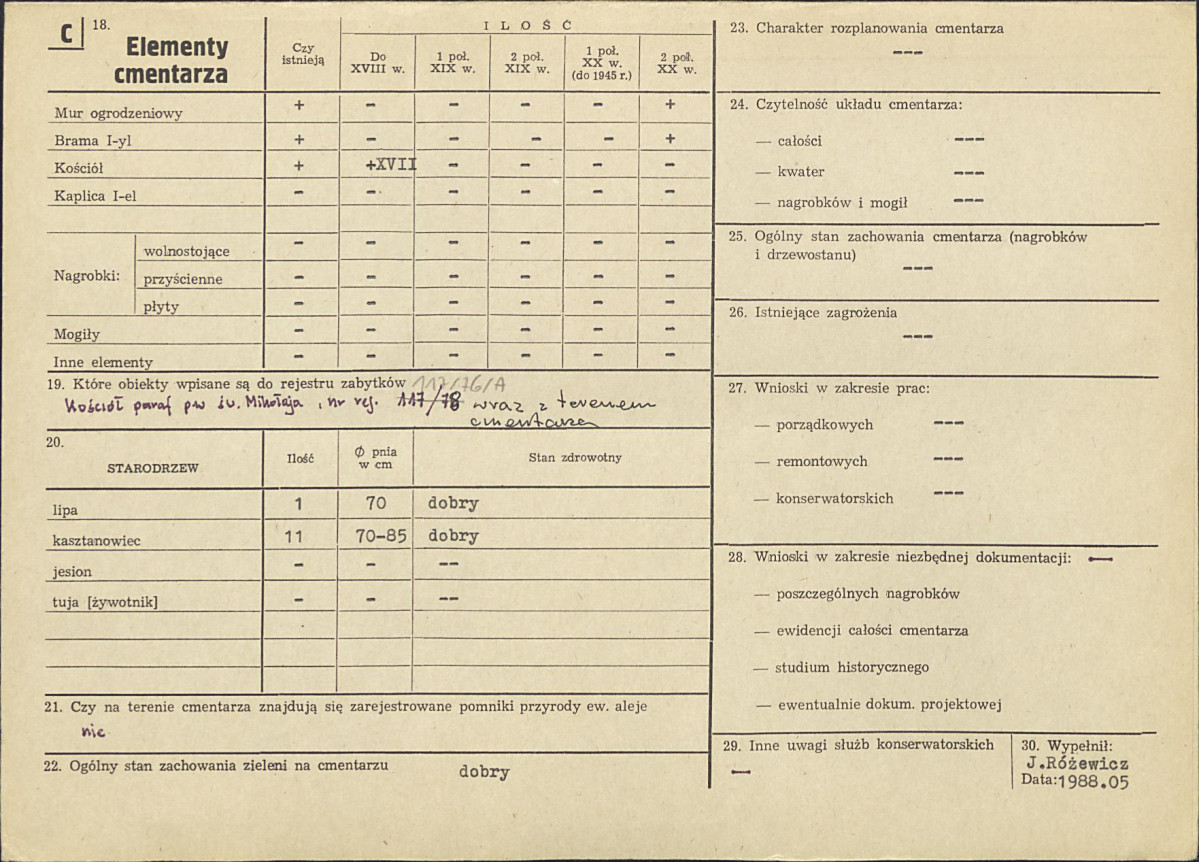 C
18. Elementy
cmentarza
Czy
istnieją
I L O Ś Ć
Do
XVIII w.
1 poł.
XIX w.
2 poł.
XIX w.
1 poł.
XX w.
(do 1945 r.)
2 poł.
XX w.
Mur ogrodzeniowy + - - - - +
Brama I-yl + - - - - +
Kościół + +XVII - - - -
Kaplica I-el - - - - - -
Nagrobki:
wolnostojące - - - - - -
przyścienne - - - - - -
płyty - - - - - -
Mogiły - - - - - -
Inne elementy - - - - - -
19. Które obiekty wpisane są do rejestru zabytków 117/76/A
Kościół paraf pw św. Mikołaja, nr rej. 117/78 wraz z terenem
cmentarza
20.
STARODRZEW
Ilość
Ø pnia
w cm
Stan zdrowotny
lipa 1 70 dobry
kasztanowiec 11 70-85 dobry
jesion - - --
tuja [żywotnik] - - --
21. Czy na terenie cmentarza znajdują się zarejestrowane pomniki przyrody ew. aleje
nie
22. Ogólny stan zachowania zieleni na cmentarzu dobry
23. Charakter rozplanowania cmentarza
---
24. Czytelność układu cmentarza:
— całości ---
— kwater ---
— nagrobków i mogił ---
25. Ogólny stan zachowania cmentarza (nagrobków
i drzewostanu)
---
26. Istniejące zagrożenia
---
27. Wnioski w zakresie prac:
— porządkowych ---
— remontowych ---
— konserwatorskich ---
28. Wnioski w zakresie niezbędnej dokumentacji: —
— poszczególnych nagrobków
— ewidencji całości cmentarza
— studium historycznego
— ewentualnie dokum. projektowej
29. Inne uwagi służb konserwatorskich
—
30. Wypełnił:
J.Różewicz
Data:1988.05